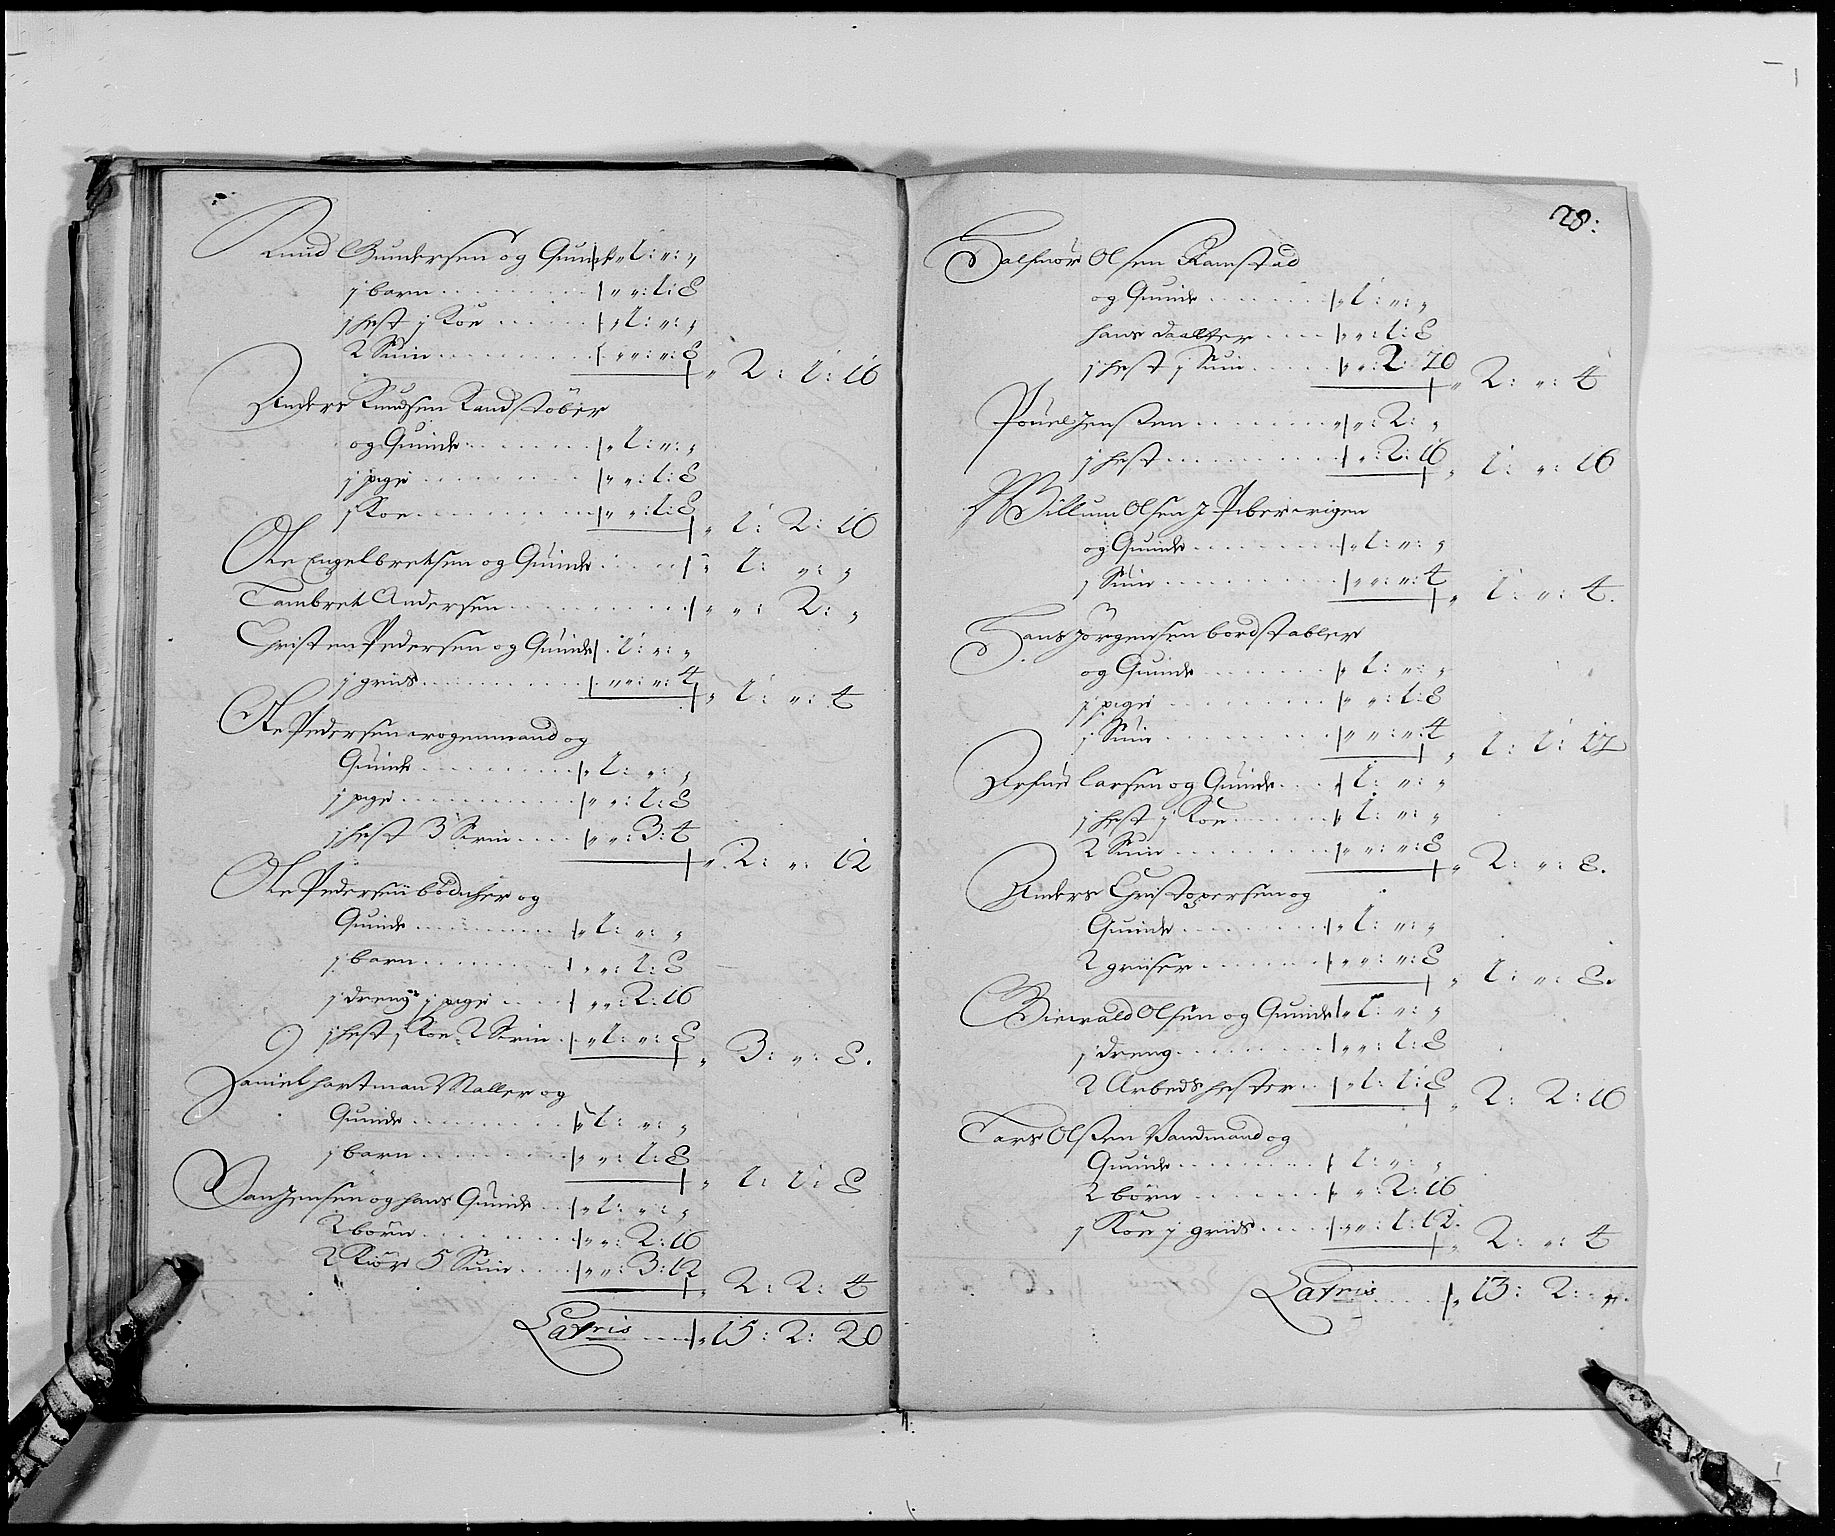 Knud Gundersen og Quinde „ 1: „: „
j barn „ „: 1: 8
j hest j Koe „ 1: „: „
2 Suin „ „: „: 8 „ 2: 1: 16
Anders Knudsen Kandstøber
og Quinde „ 1: „: „
j pige „ „: 1: 8
j Koe „ „: 1: 8 „ 1: 2: 16
Ole Engelbretsen og Quinde „ 1: „: „
Lambret Andersen „ „: 2: „
Christen Pedersen og Quinde „ 1: „: „
j griis „ „: „: 4 „ 1: „: 4
Ole Pedersen wognmand og
Quinde „ 1: „: „
j pige „ „: 1: 8
j hest 3 Svin „ „: 3: 4 „ 2: „: 12
Ole Pedersen bødncher og
Quinde „ 1: „: „
j barn „ „: 1: 8
j dreng j pige „ „: 2: 16
j hest j Koe 2 Svin „ 1: „: 8 „ 3: „: 8.
Daniel hartman Maller og
Quinde „ 1: „: „
j barn „ „: 1: 8 „ 1: 1: 8
Jensen og hans Quinde „ 1: „: „
2 børn „ „: 2: 16
2 Kiør 5 Suin „ „: 3: 12 „ 2: 2: 4
Latris „ 15: 2: 20
28:
Halfuor Olsen Ramstad
og Quinde „ 1: „: „
hans daatter „ „: 1: 8
j hest j Suin „ „: 2: 20 „ 2: „: 4
Pouel Jensen „ „: 2: „
j hest „ „: 2: 16 „ 1: „: 16
Willum Olsen J Piberwigen
og Quinde „ 1: „: „
j Suin „ „: „: 4 „ 1: „: 4.
Hans Jørgensen bordstabler
og Quinde „ 1: „: „
j pige „ „: 1: 8
j Suin „ „: „: 4 „ 1: 1: 12
Larsen og Quinde „ 1: „: „
j hest j Koe „ 1: „: „
2 Suin „ „: „: 8 „ 2: „: 8.
Anders Christopersen og
Quinde „ 1: „: „
2 griiser „ „: „: 8 „ 1: „: 8.
Olsen og Quinde „ 1: „: „
j dreng „ „: 1: 8
2 Arbeds hester „ 1: 1: 8 „ 2: 2: 16
Lars Olsen Vandmand og
Quinde „ 1: „: „
2 børn „ „: 2: 16
j Koe j griis „ „: 1: 12. „ 2: „: 4
Latris „ 13: 2: „.